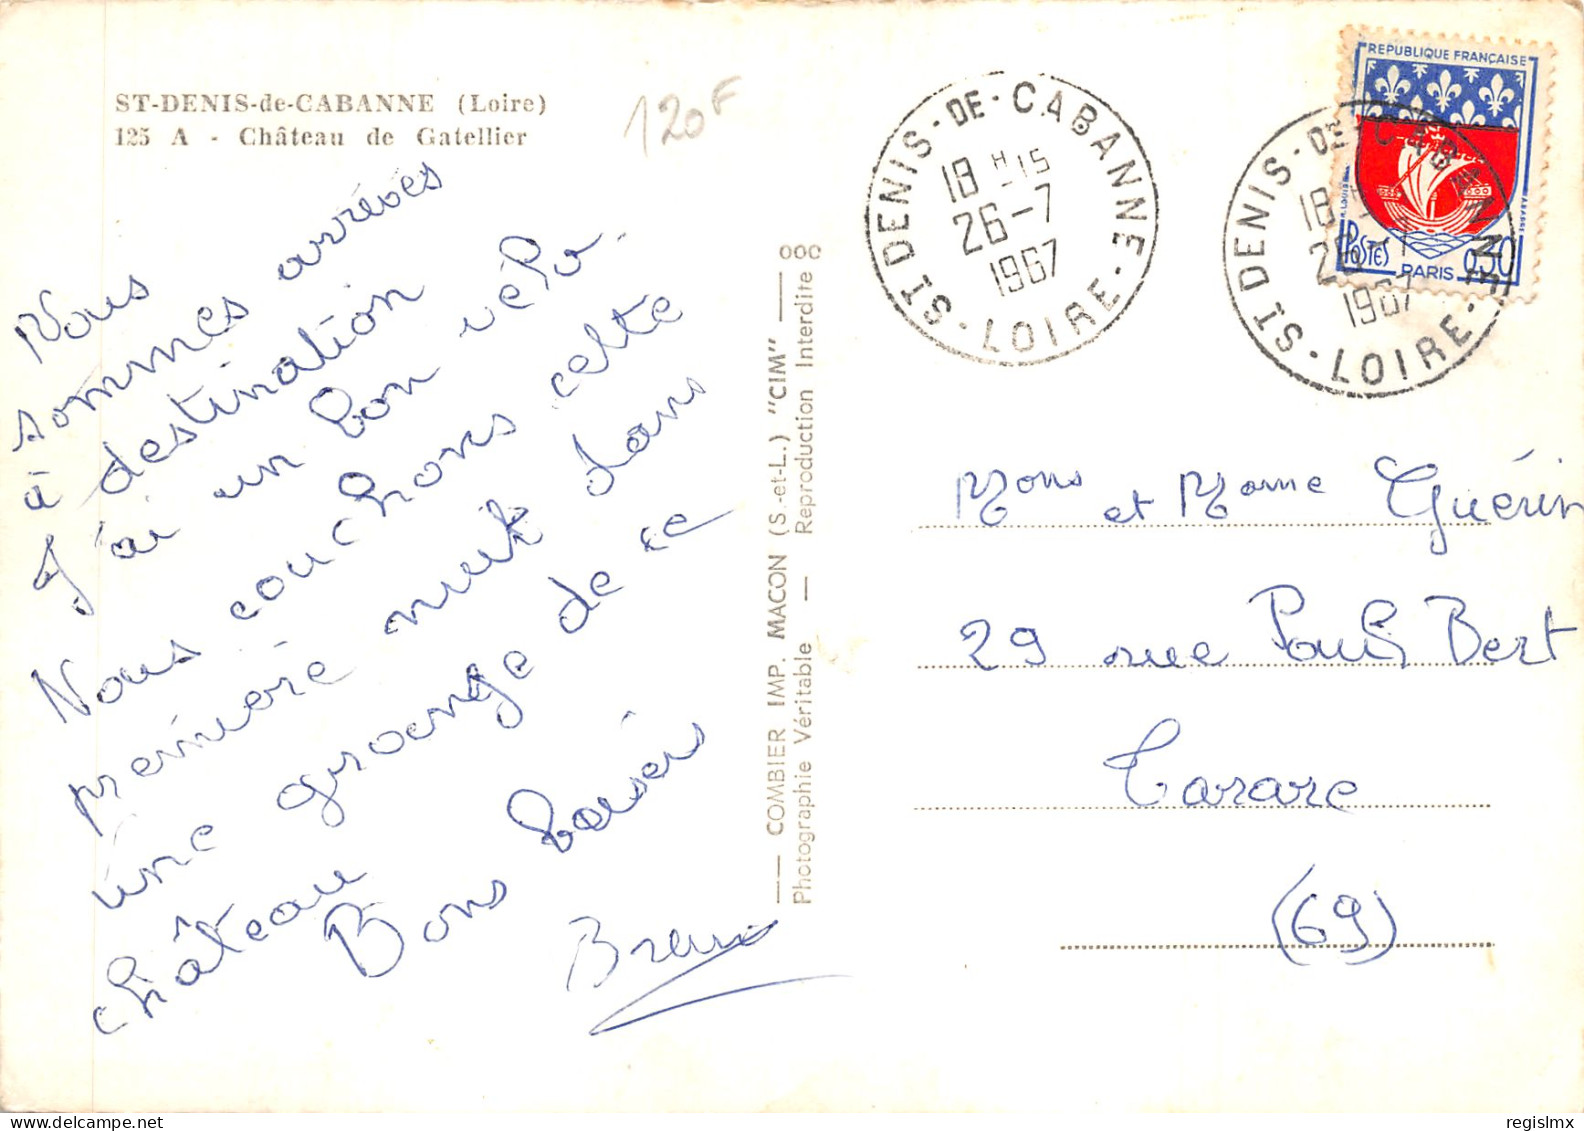 ST-DENIS-de-CABANNE (Loire)
125 A - Château de Gatellier
120F
Nous
sommes arrivés
à destination
J'ai un bon vélo.
Nous couchons cette
première nuit dans
une grange de ce
château
Bons baisers
COMBIER IMP. MACON (S.-et-L.) "CIM"
Photographie Véritable — Reproduction Interdite
ST DENIS-DE-CABANNE
18 H 15
26-7
1967
LOIRE
REPUBLIQUE FRANÇAISE
POSTES
PARIS
0,30
ST DENIS-DE-CABANNE
18
26-7
1967
LOIRE
Mons et Mame Guérin
29 rue Paul Bert
Tarare
(69)
regislmx